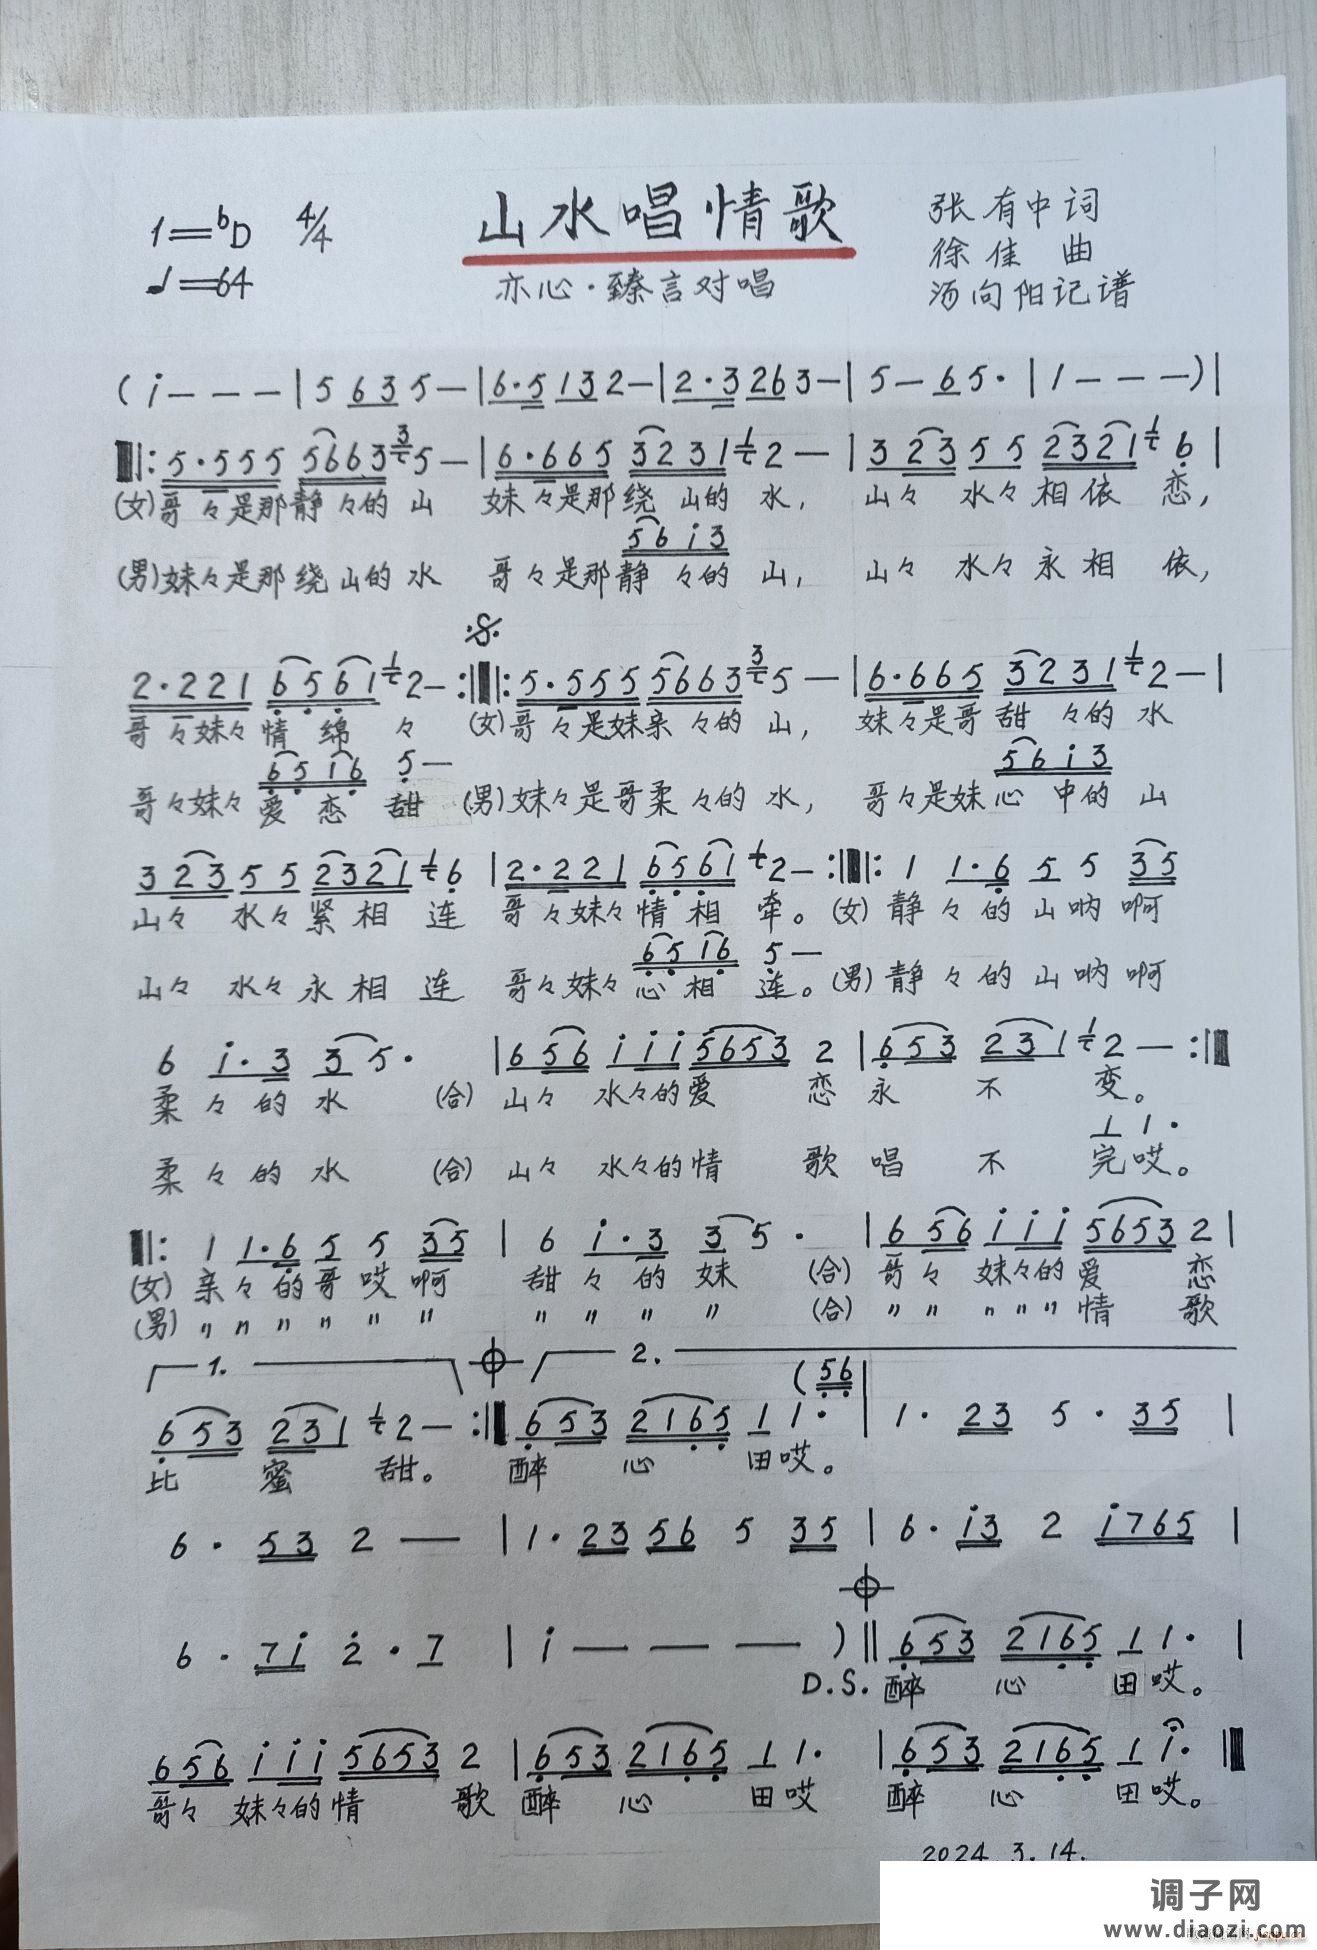 1=♭D 4/4 山水唱情歌 张有中词
♩=64 亦心·臻言对唱 徐佳 曲
汤向阳记谱
( i - - - | 5 6 3 5 - | 6·5 1 3 2 - | 2·3 2 6 3 - | 5 - 6 5· | 1 - - - ) |
‖: 5·5 5 5 5 6 6 3 3 5 - | 6·6 6 5 3 2 3 1 1 2 - | 3 2 3 5 5 2 3 2 1 1 6 |
(女)哥々是那静々的山 妹々是那绕山的水, 山々 水々相依 恋,
5 6 i 3
(男)妹々是那绕山的水 哥々是那静々的山, 山々 水々永相 依,
2·2 2 1 6 5 6 1 1 2 - :‖: 5·5 5 5 5 6 6 3 3 5 - | 6·6 6 5 3 2 3 1 1 2 - |
哥々妹々情绵々 (女)哥々是妹亲々的山, 妹々是哥甜々的水
6 5 1 6 5 - 5 6 i 3
哥々妹々爱恋甜 (男)妹々是哥柔々的水, 哥々是妹心中的山
3 2 3 5 5 2 3 2 1 1 6 | 2·2 2 1 6 5 6 1 1 2 - :‖: 1 1·6 5 5 3 5
山々 水々紧相连 哥々妹々情相牵。(女)静々的山呐啊
6 5 1 6 5 -
山々 水々永相连 哥々妹々心相连。(男)静々的山呐啊
6 i·3 3 5· | 6 5 6 i i i 5 6 5 3 2 | 6 5 3 2 3 1 1 2 - :‖
柔々的水 (合) 山々 水々的爱 恋 永 不 变。
1 1·
柔々的水 (合) 山々 水々的情 歌 唱 不 完哎。
‖: 1 1·6 5 5 3 5 | 6 i·3 3 5· | 6 5 6 i i i 5 6 5 3 2 |
(女) 亲々的哥哎啊 甜々的妹 (合) 哥々 妹々的爱 恋
(男) 〃 〃 〃 〃 〃 〃 〃 〃 〃 〃 (合) 〃 〃 〃 〃 〃 情 歌
1. 2.
(5 6
6 5 3 2 3 1 1 2 - :‖ 6 5 3 2 1 6 5 1 1· | 1· 2 3 5· 3 5 |
比 蜜 甜。 醉 心 田哎。
6· 5 3 2 — | 1· 2 3 5 6 5 3 5 | 6· i 3 2 i 7 6 5 |
6· 7 i 2· 7 | i — — — ) ‖ 6 5 3 2 1 6 5 1 1· |
D.S. 醉 心 田哎。
6 5 6 i i i 5 6 5 3 2 | 6 5 3 2 1 6 5 1 1· | 6 5 3 2 1 6 5 1 i· ‖
哥々 妹々的情 歌 醉 心 田哎 醉 心 田哎。
2024.3.14.
调子网
www.diaozi.com